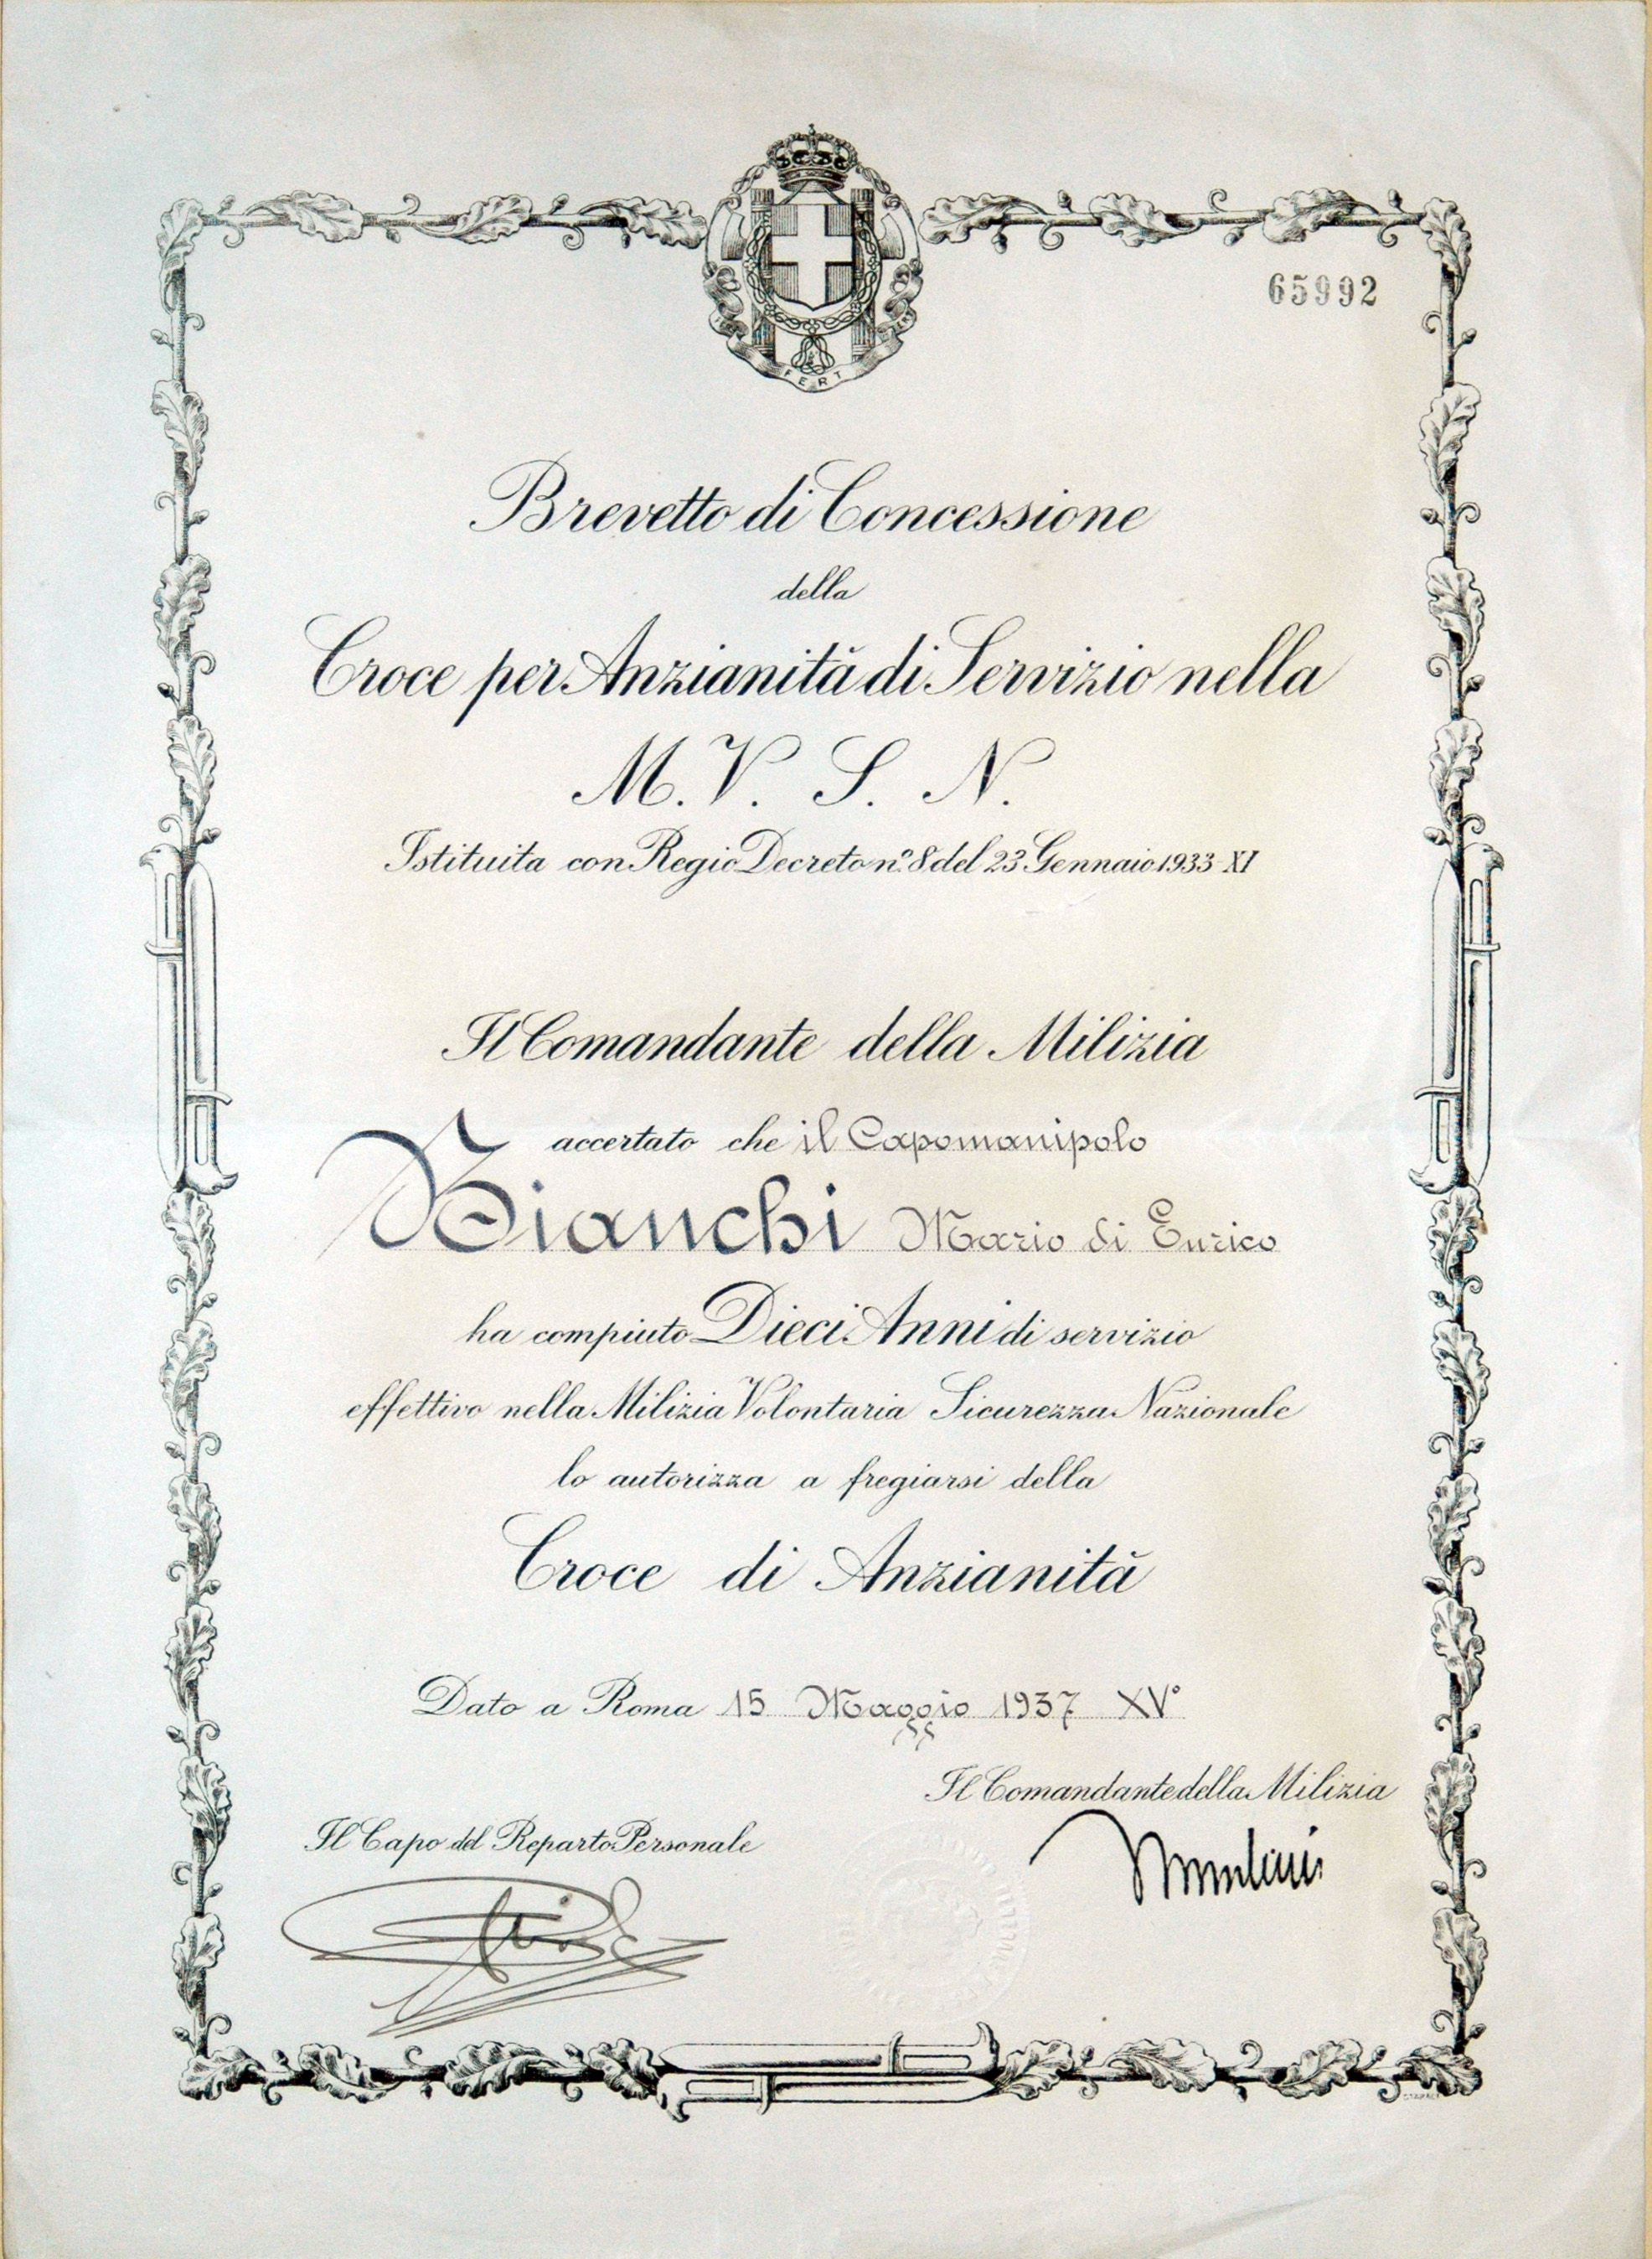 65992
FERT
Brevetto di Concessione
della
Croce per Anzianità di Servizio nella
M. V. S. N.
Istituita con Regio Decreto n.º 8 del 23 Gennaio 1933-XI
Il Comandante della Milizia
accertato che il Capomanipolo
Bianchi Mario di Enrico
ha compiuto Dieci Anni di servizio
effettivo nella Milizia Volontaria Sicurezza Nazionale
lo autorizza a fregiarsi della
Croce di Anzianità
Dato a Roma 15 Maggio 1937 XV°
Il Comandante della Milizia
Il Capo del Reparto Personale
Mussolini